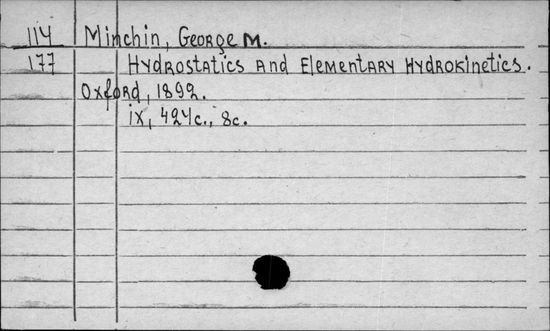 114 Minchin, George M.
177 Hydrostatics and Elementary Hydrokinetics.
Oxford, 1892.
ix, 424c., 8c.